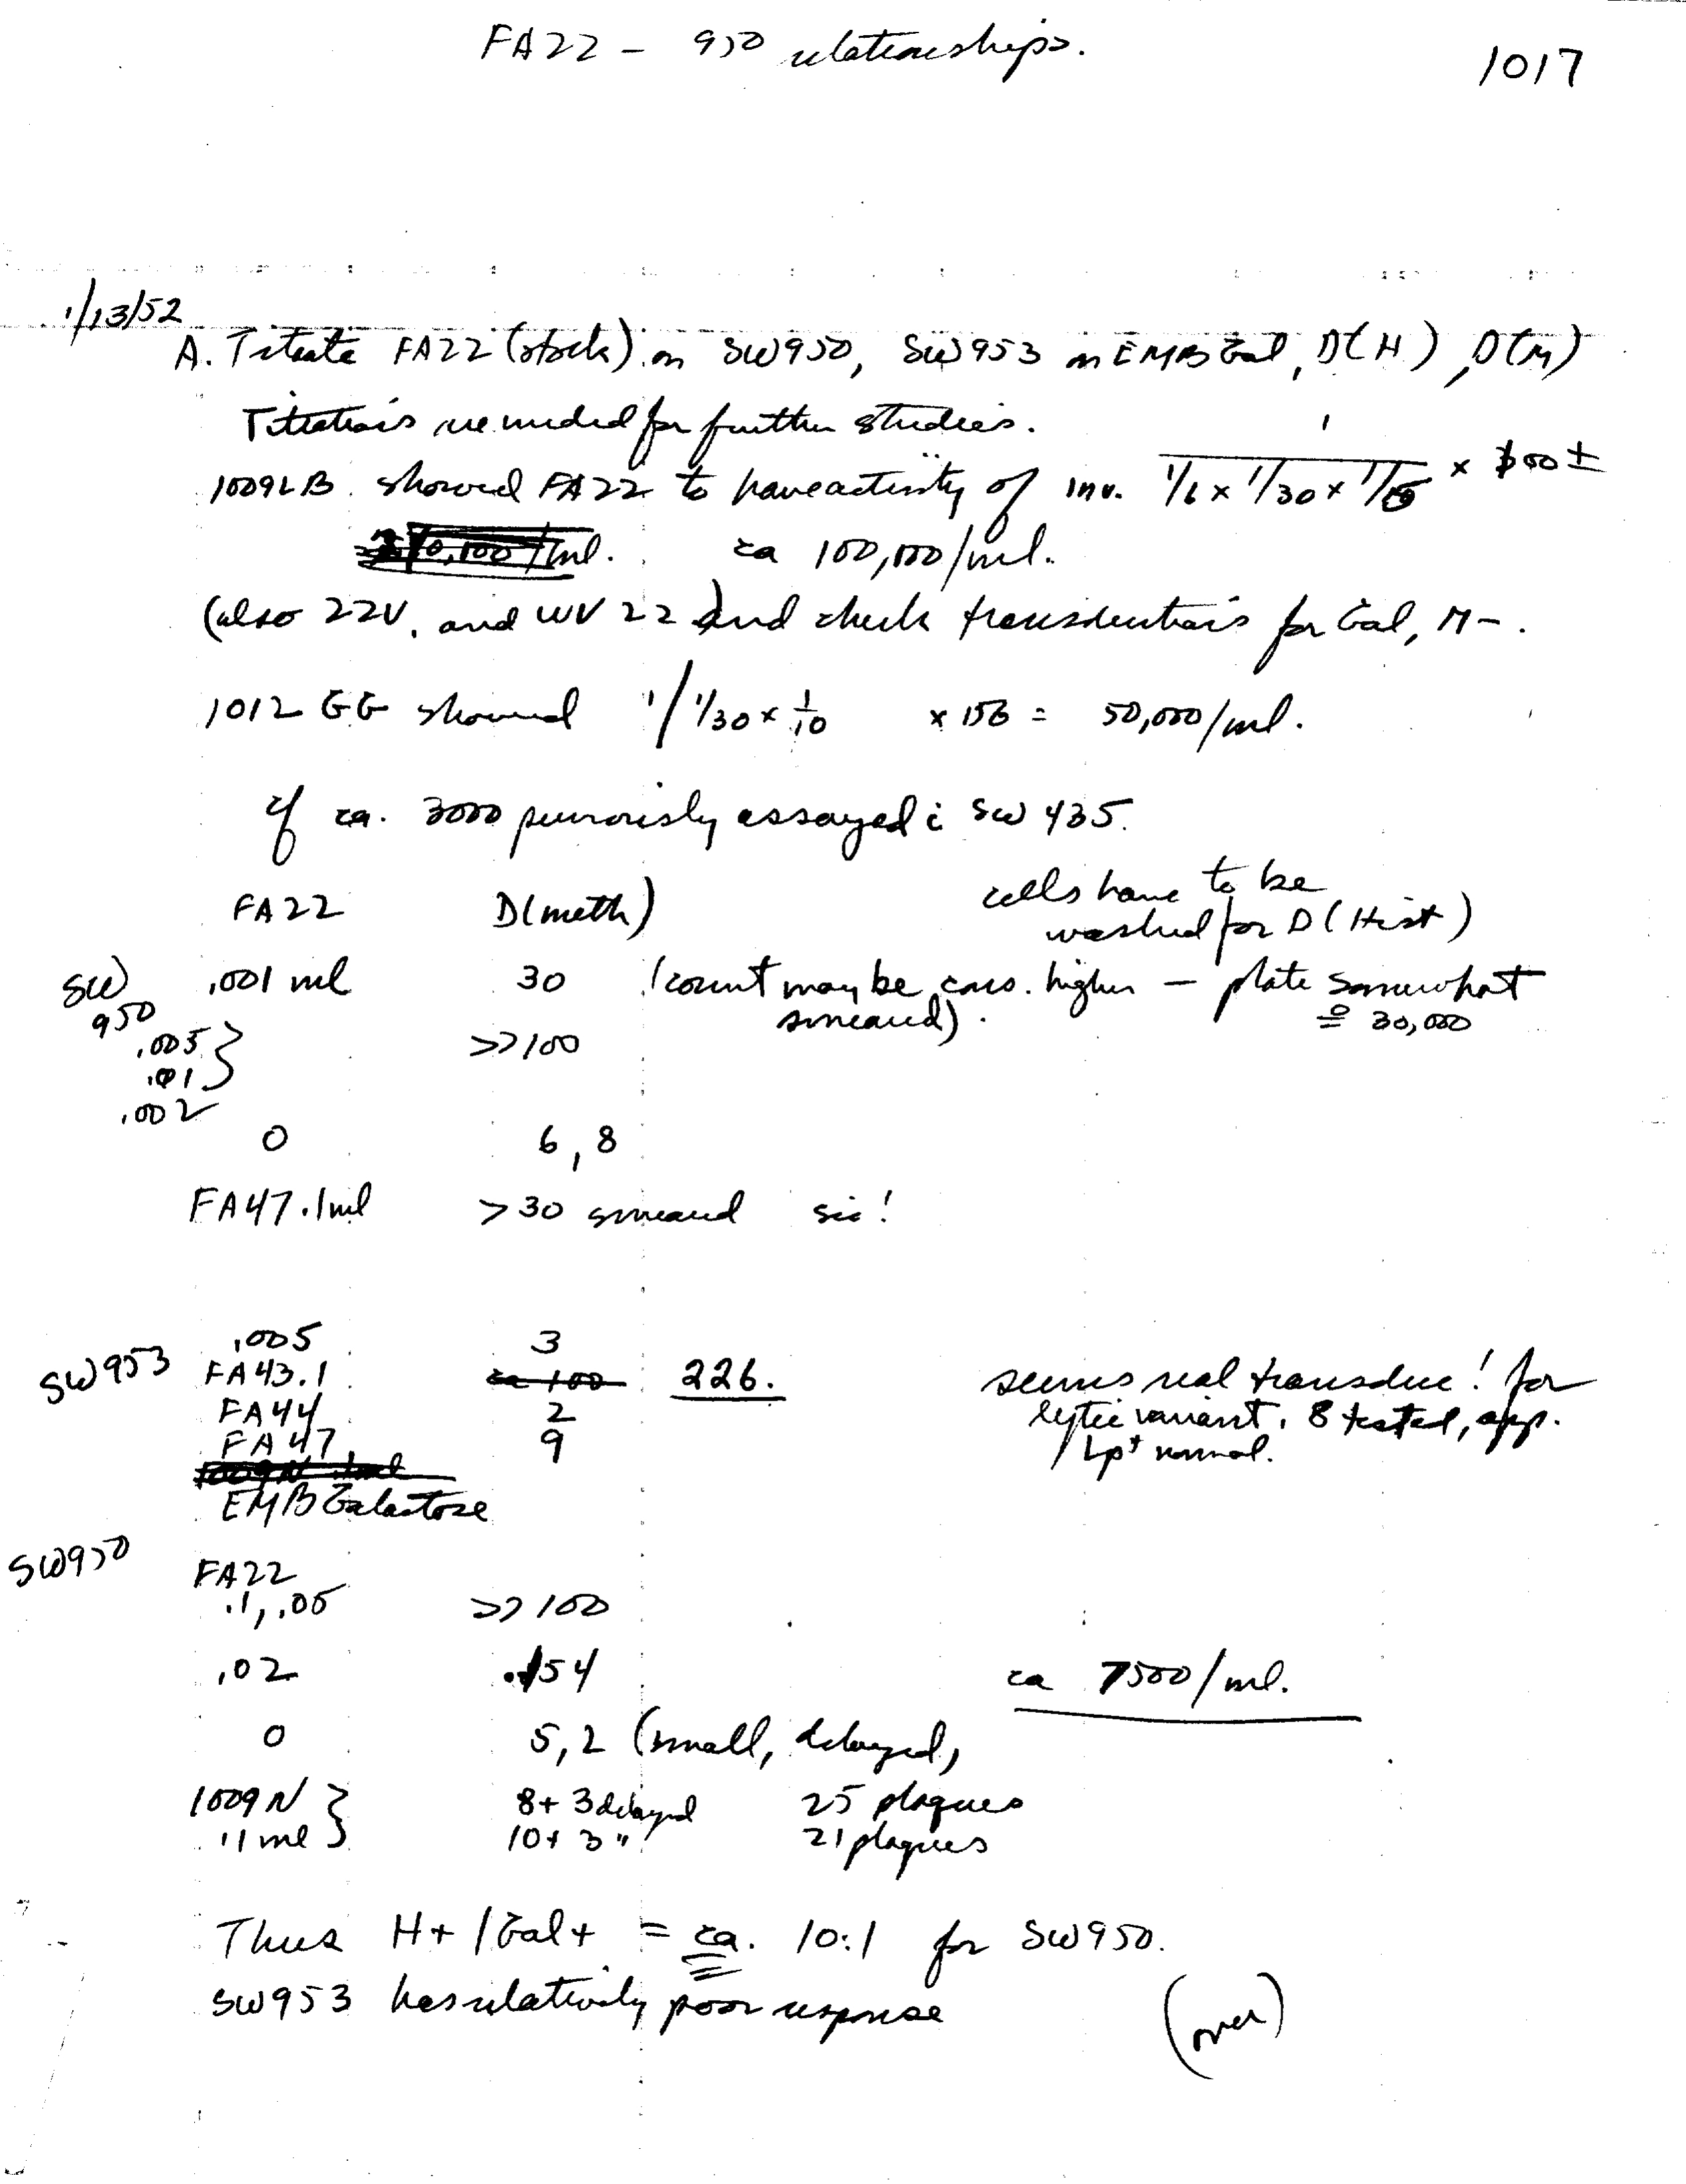 FA22 - 950 relationships.
1017
1/13/52
A. Titrate FA22 (stock) on SW950, SW953 in EMB Gal, D(H), D(M)
Titrations are needed for further studies.
1009LB showed FA22 to have activity of inv. 1/(1/6 x 1/30 x 1/15) x 00 ±
ca 100,000/ml.
(also 22V, and WV 22) and check transductions for Gal, M-.
1012 GG showed 1/ 1/30 x 1/10 x 156 = 50,000/ml.
cf ca. 3000 previously assayed c̄ SW 435.
FA22 D(meth) cells have to be
washed for D(Hist)
SW 950 .001 ml 30 (count may be cons. higher — plate somewhat
smeared). ≐ 30,000
.005 } >>100
.01 }
.002
0 6, 8
FA47 .1ml >30 smeared sic!
SW953 .005 3
FA43.1 ca 100 226. seems real transduc! for
FA44 2 lytic variant. 8 tested, app.
FA47 9 Lp+ normal.
1009N .1ml
EMB Galactose
SW950 FA22
.1, .05 >>100
.02 154 ca 7500/ml.
0 5, 2 (small, delayed)
1009N } 8+ 3 delayed 25 plaques
.1 ml } 10+ 3 " 21 plaques
Thus H+ / Gal+ = ca. 10:1 for SW950.
SW953 has relatively poor response
(over)